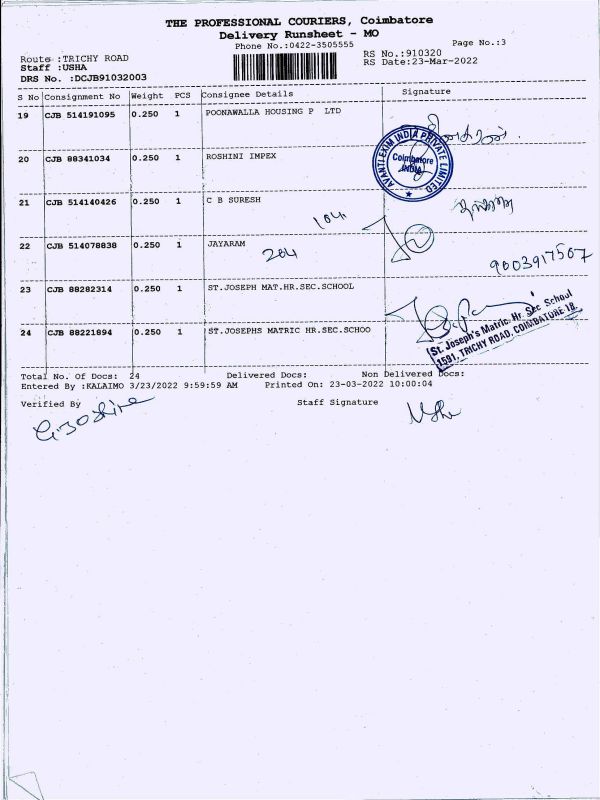 THE PROFESSIONAL COURIERS, Coimbatore
Delivery Runsheet - MO
Phone No.:0422-3505555
Page No.:3
Route :TRICHY ROAD
RS No.:910320
Staff :USHA
RS Date:23-Mar-2022
DRS No. :DCJB91032003
S No Consignment No Weight PCS Consignee Details Signature
19 CJB 514191095 0.250 1 POONAWALLA HOUSING P LTD
20 CJB 88341034 0.250 1 ROSHINI IMPEX
AVANTI EXIM INDIA PRIVATE LIMITED
Coimbatore
INDIA
21 CJB 514140426 0.250 1 C B SURESH
104
22 CJB 514078838 0.250 1 JAYARAM
204
9003917507
23 CJB 88282314 0.250 1 ST.JOSEPH MAT.HR.SEC.SCHOOL
24 CJB 88221894 0.250 1 ST.JOSEPHS MATRIC HR.SEC.SCHOO
St. Joseph's Matric. Hr. Sec. School
1591, TRICHY ROAD, COIMBATORE 18.
Total No. Of Docs: 24 Delivered Docs: Non Delivered Docs:
Entered By :KALAIMO 3/23/2022 9:59:59 AM Printed On: 23-03-2022 10:00:04
Verified By Staff Signature
Usha